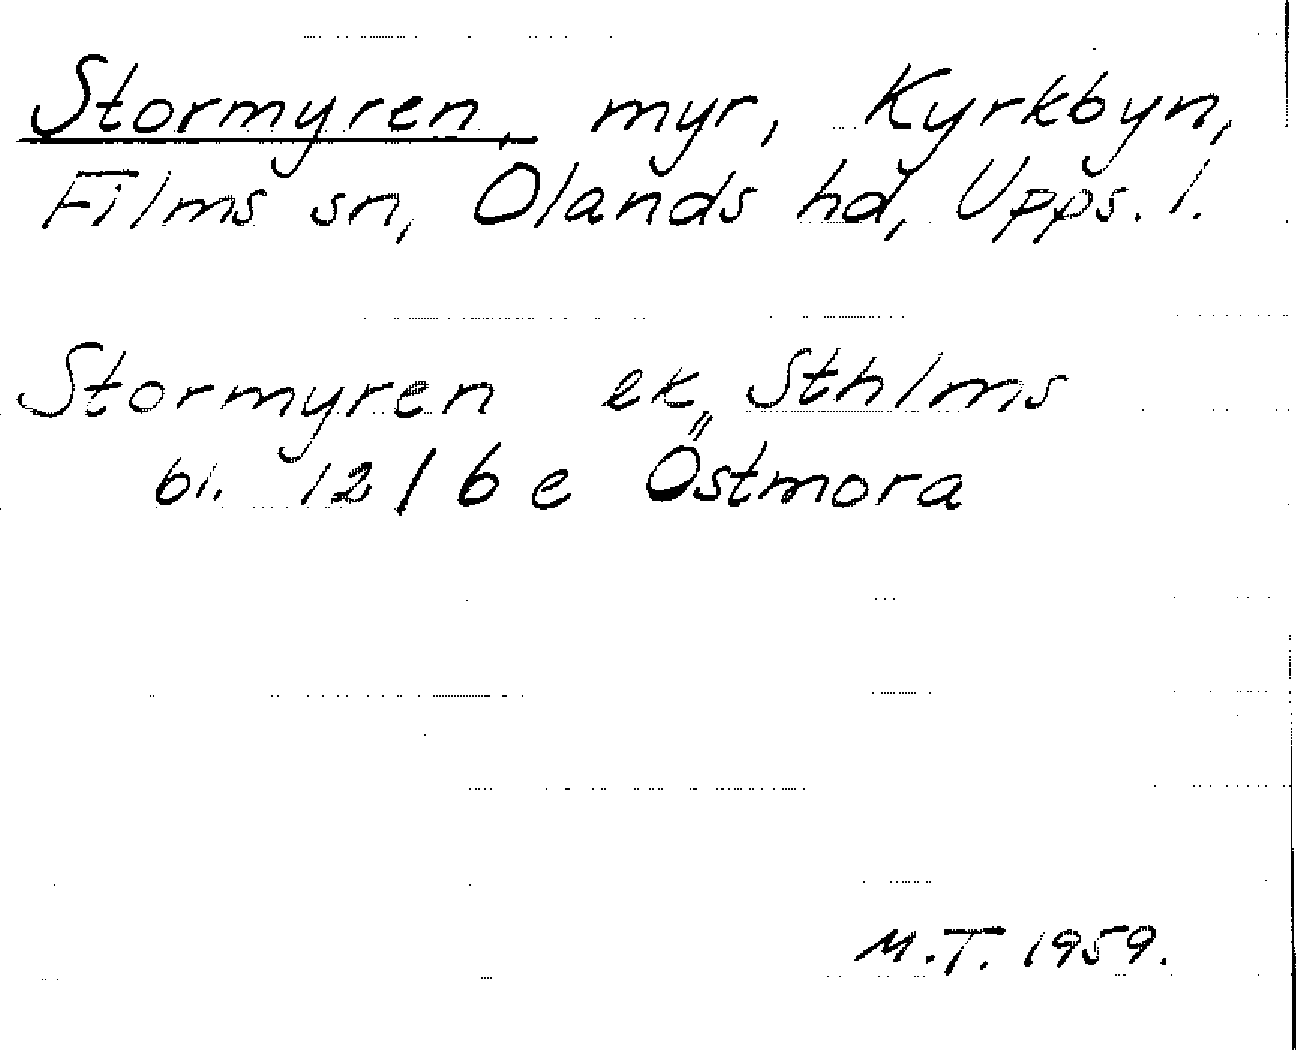 Stormyren, myr, Kyrkbyn,
Films sn, Olands hd, Upps. l.
Stormyren ek Sthlms
bl. 12/6 e Östmora
M.T. 1959.